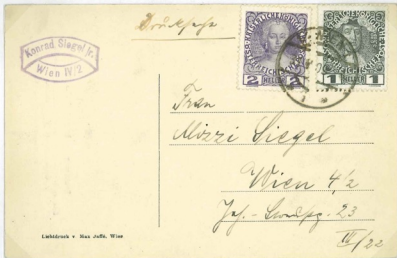 Drucksache
Konrad Siegel jr.
Wien IV/2
2 HELLER 2
1 HELLER 1
Frau
Mizzi Siegel
Wien 4/2
Joh.-
23
IV/22
Lichtdruck v. Max Jaffé, Wien